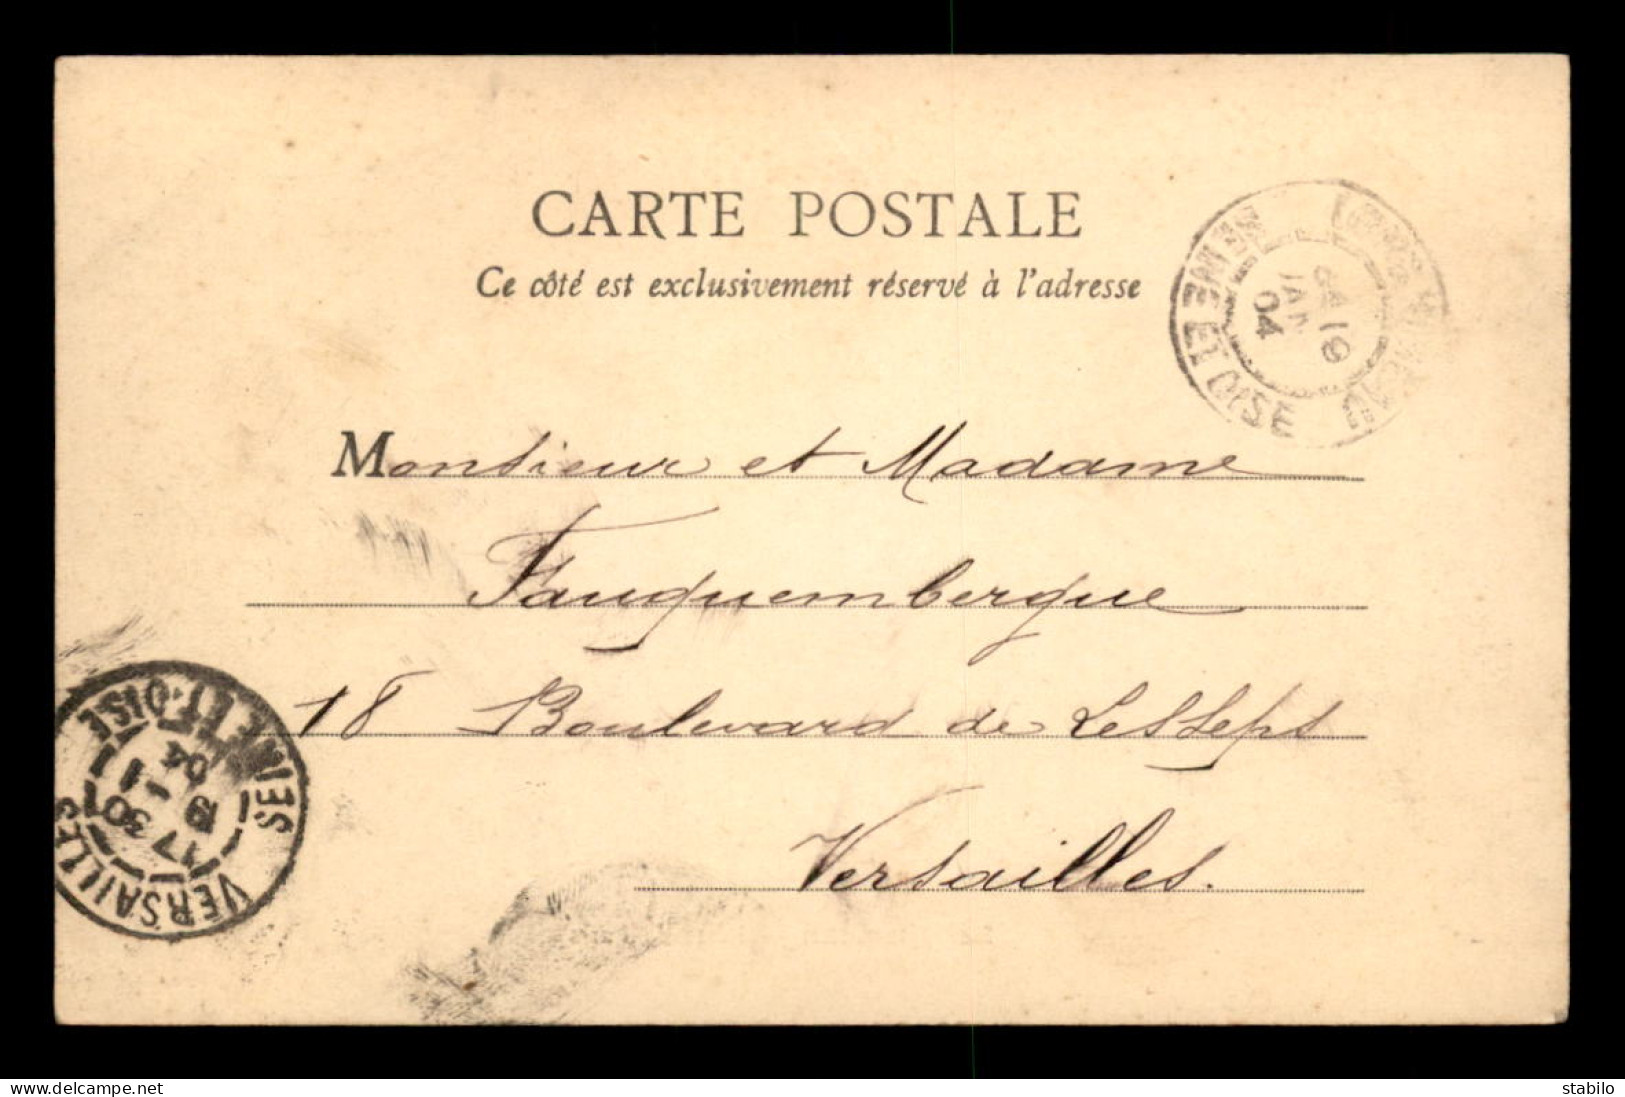 CARTE POSTALE
Ce côté est exclusivement réservé à l'adresse
SEINE ET OISE
19
JAN
04
Monsieur et Madame
Fauquembergue
18 Boulevard de Lesseps
Versailles.
VERSAILLES
SEINE ET-OISE
17 30
19
1
04
www.delcampe.net
stabilo